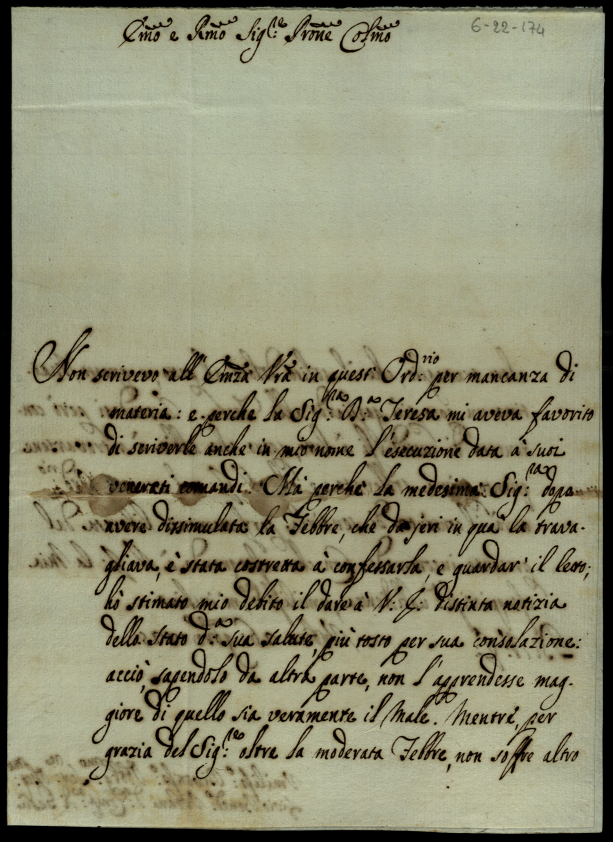 6-22-174
Emo e Rmo Sig.re Prone Colmo
Non scrivevo all' Emza Vra in quest' Ord.rio per mancanza di
materia: e perche la Sig.ra B.a Teresa mi aveva favorito
di scriverle anche in mio nome l'esecuzione data à suoi
venerati comandi. Mà perche la medesima Sig.ra dopo
avere dissimulata la Febbre, che da jeri in quà la trava-
gliava, è stata costretta à confessarla, e guardar' il letto;
hò stimato mio debito il dare à V: E: distinta notizia
dello stato d.a sua salute, più tosto per sua consolazione:
acciò, sapendolo da altra parte, non l'apprendesse mag-
giore di quello sia veramente il Male. Mentre, per
grazia del Sig.re oltre la moderata Febbre, non soffre altro